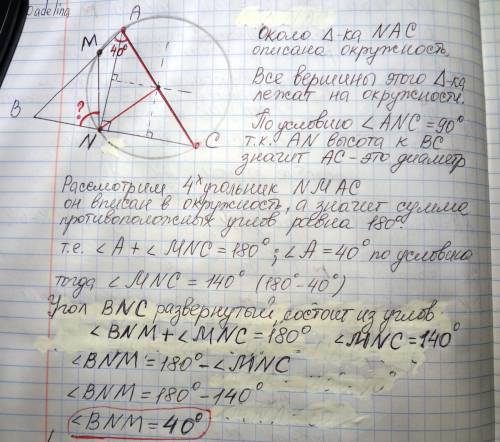 Dadelina
A
M
40°
B
?
N
C
Около Δ-ка NAC
описана окружность.
Все вершины этого Δ-ка
лежат на окружности.
По условию ∠ANC=90°
т.к. AN высота к BC
значит AC-это диаметр
Рассмотрим 4ˣугольник NMAC
он вписан в окружность, а значит сумма
противоположных углов равна 180°.
т.е. ∠A+∠MNC=180°; ∠A=40° по условию
тогда ∠MNC=140° (180°-40°)
Угол BNC развернутый, состоит из углов
∠BNM+∠MNC=180° ∠MNC=140°
∠BNM=180°-∠MNC
∠BNM=180°-140°
∠BNM=40°